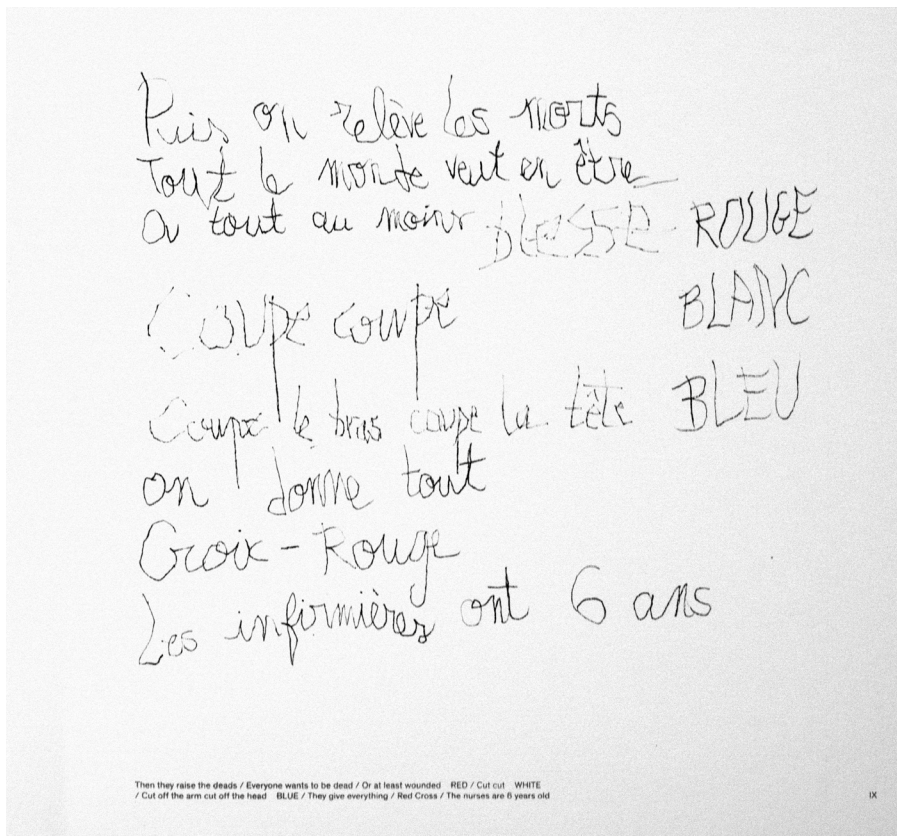 Puis on relève les morts
Tout le monde veut en être
Ou tout au moins BLESSÉ ROUGE
Coupe coupe BLANC
Coupe le bras coupe la tête BLEU
on donne tout
Croix-Rouge
Les infirmières ont 6 ans
Then they raise the deads / Everyone wants to be dead / Or at least wounded RED / Cut cut WHITE
/ Cut off the arm cut off the head BLUE / They give everything / Red Cross / The nurses are 6 years old
IX